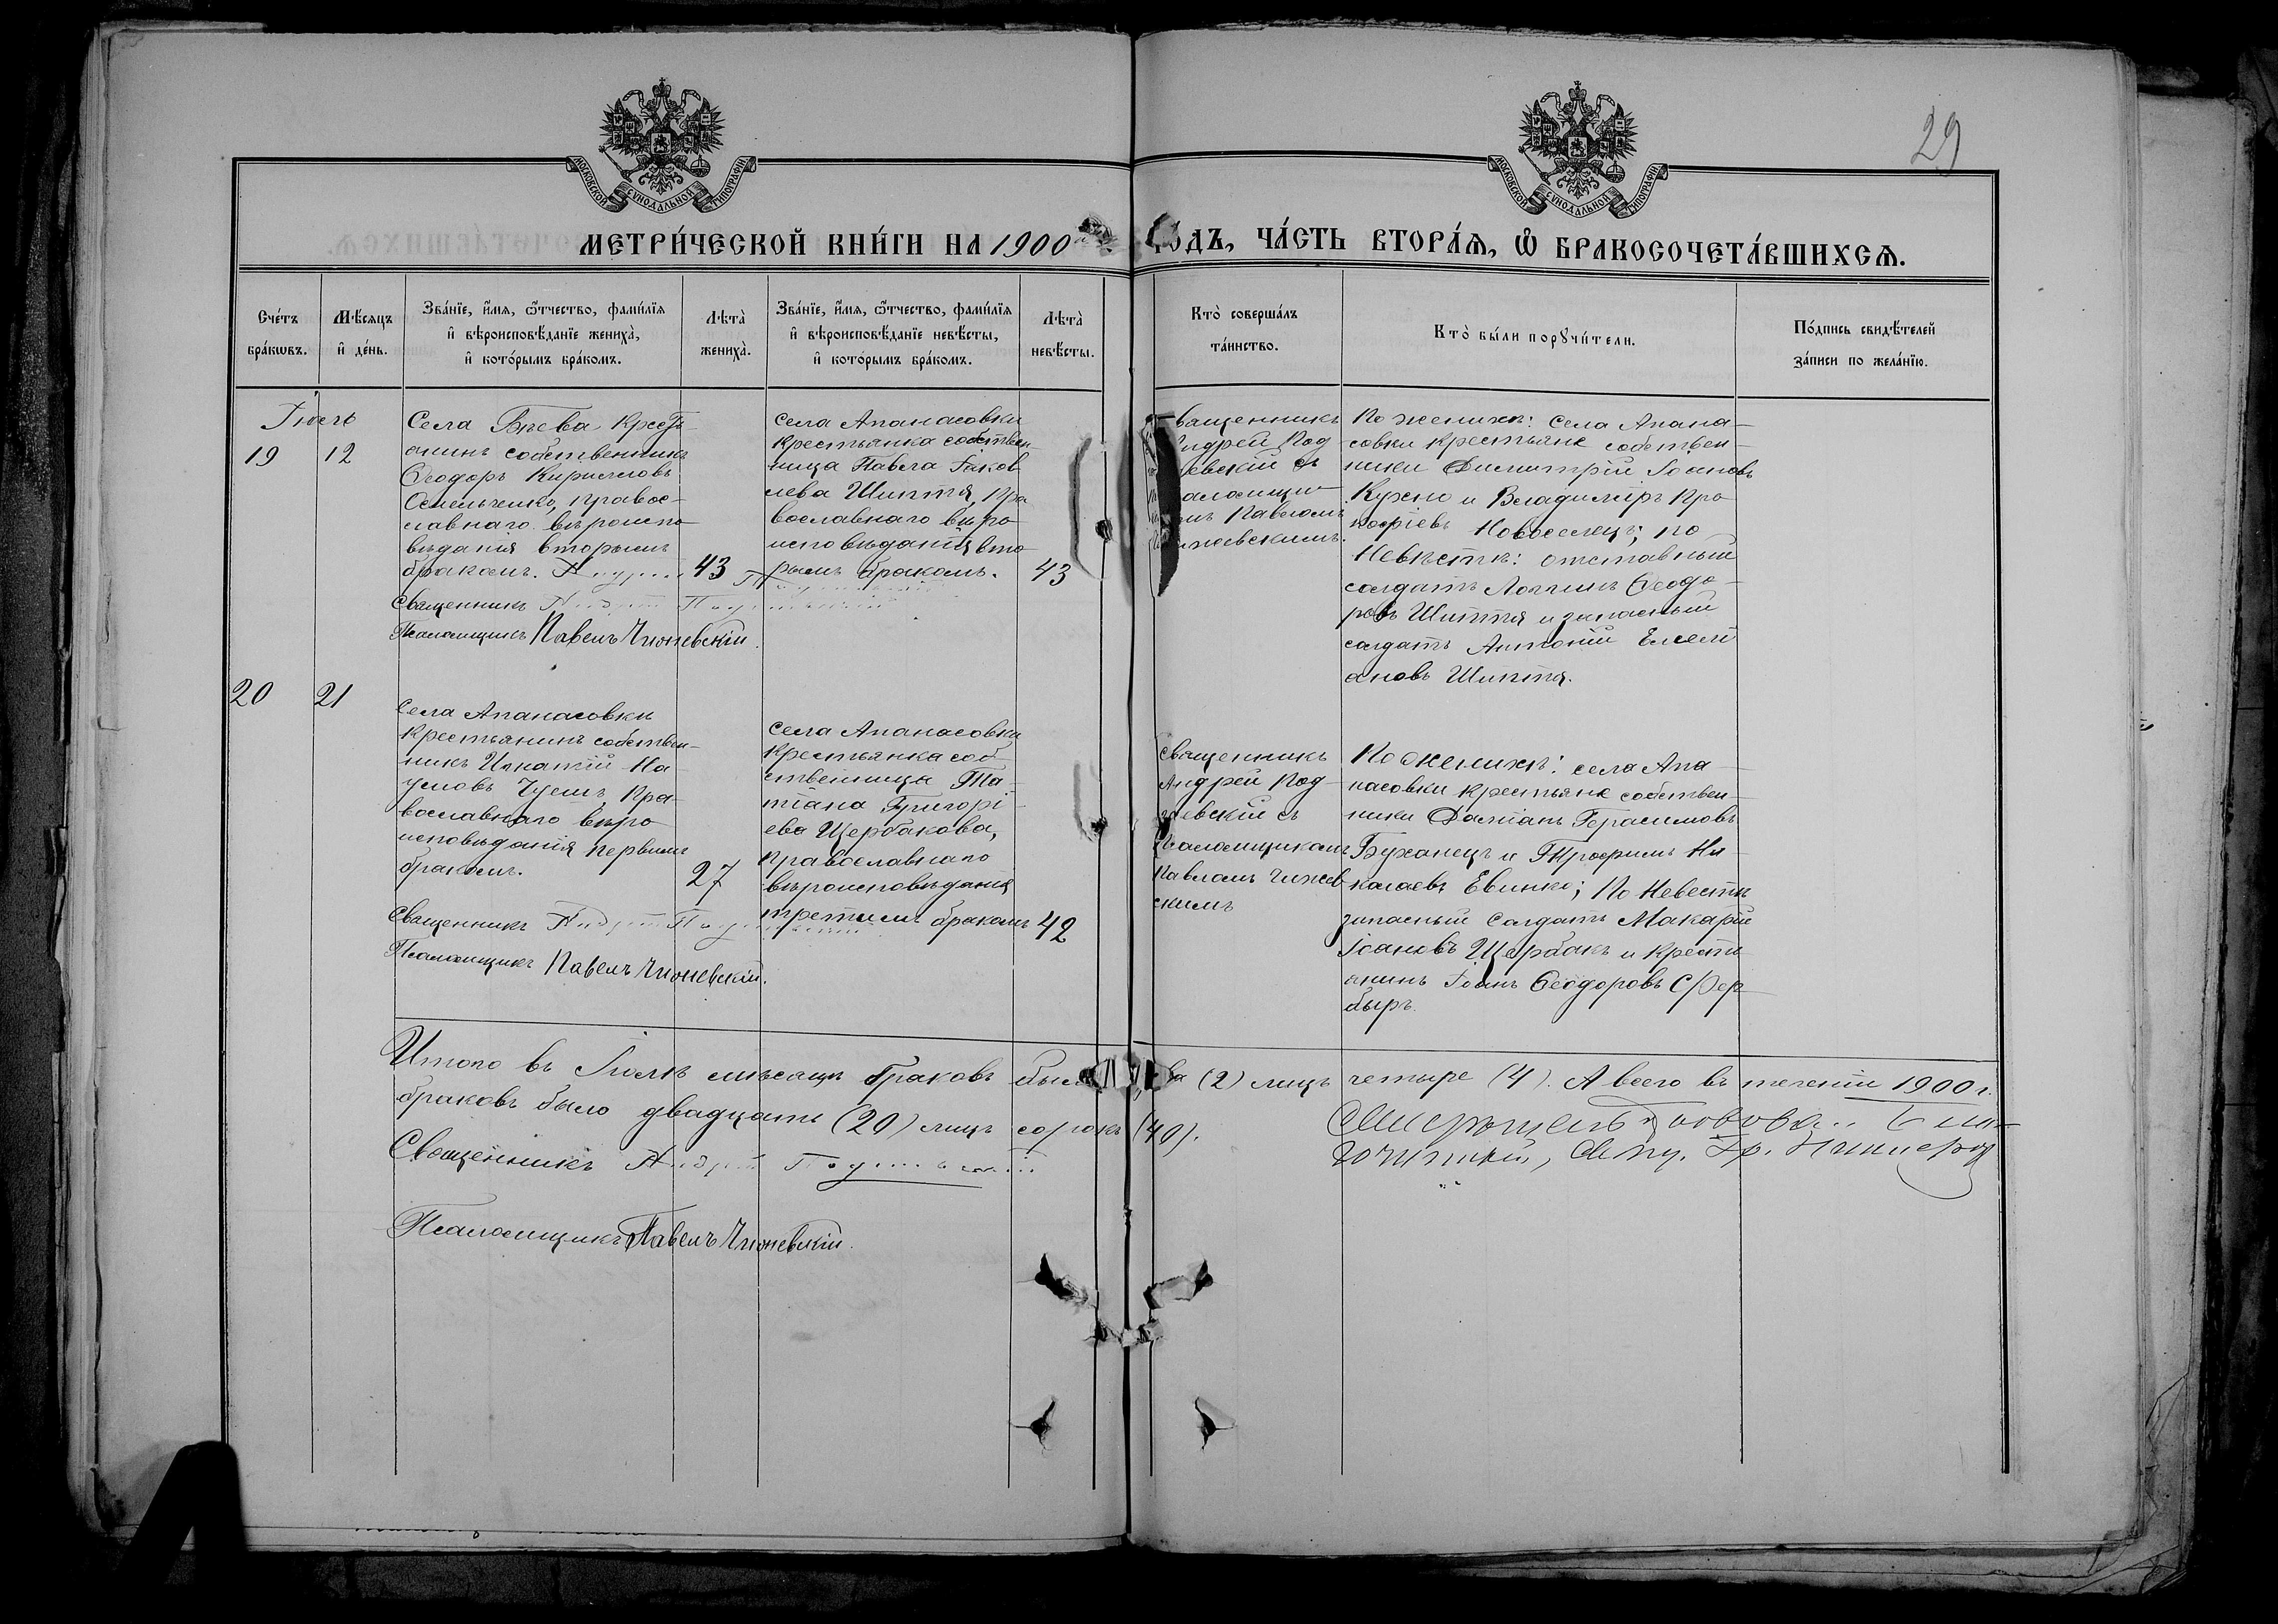 29
МОСКОВСКОЙ СѴНОДАЛЬНОЙ ТИПОГРАФІИ
МОСКОВСКОЙ СѴНОДАЛЬНОЙ ТИПОГРАФІИ
МЕТРИ́ЧЕСКОЙ КНИ́ГИ НА 1900 ГОДЪ, ЧА́СТЬ ВТОРА́Я, Ѡ҆ БРАКОСОЧЕТА́ВШИХСЯ.
Сче́тъ
бра́кѡвъ.
Мѣ́сяцъ
и҆ де́нь.
Зва́нїе, и҆́мя, ѻ҆́тчество, фами́лїя
и҆ вѣроисповѣ́данїе жениха̀,
и҆ кото́рымъ бра́комъ.
Лѣта̀
жениха̀.
Зва́нїе, и҆́мя, ѻ҆́тчество, фами́лїя
и҆ вѣроисповѣ́данїе невѣ́сты,
и҆ кото́рымъ бра́комъ.
Лѣта̀
невѣ́сты.
Кто̀ соверша́лъ
та́инство.
Кто̀ бы́ли порꙋчи́тели.
По́дпись свидѣ́телей
за́писи по жела́нїю.
Іюль
19
12
Села Бѣева кресть
янинъ собственникъ
Ѳеодоръ Кирилловъ
Омельченко, правос-
лавнаго вѣроиспо
вѣданія вторымъ
бракомъ.
43
села Апанасовки
крестьянка собствен
ница Павла Іаков
лева Шиптя, пра
вославнаго вѣро
исповѣданія вто
рымъ бракомъ.
43
Священникъ Андрей
Псаломщикъ Павелъ Чижевскій.
Священникъ
Андрей Под
евскій съ
псаломщи
комъ Павломъ
Чижевскимъ.
По женихѣ: села Апана-
совки крестьяне собствен-
ники Димитрій Іоановъ
Кухно и Владиміръ Про
кофіевъ Новоселецъ; по
Невѣстѣ: отставный
солдатъ Логгинъ Ѳеодо-
ровъ Шиптя и запасный
солдатъ Антоній Емели
ановъ Шиптя.
20
21
села Апанасовки
крестьянинъ собствен-
никъ Игнатій На
умовъ Чуешъ, пра-
вославнаго вѣро
исповѣданія первымъ
бракомъ.
27
села Апанасовки
крестьянка соб
ственница Та-
тіана Григорі-
ева Щербакова,
православнаго
вѣроисповѣданія
третьимъ бракомъ
42
Священникъ Андрей
Псаломщикъ Павелъ Чижевскій.
священникъ
Андрей Под-
евскій съ
Псаломщикомъ
Павломъ Чижев
скимъ
По женихѣ: села Апа-
насовки крестьяне собствен-
ники Даміанъ Герасимовъ
Буханецъ и Трофимъ Ни-
колаевъ Евинко; По Невѣстѣ
запасный солдатъ Макарій
Іоановъ Щербакъ и кресть
янинъ Іоанъ Ѳеодоровъ
Итого въ Іюлѣ мѣсяцѣ браковъ было два (2) лицъ четыре (4). А всего въ теченіи 1900 г.
браковъ было двадцать (20) лицъ сорокъ (40).
Священникъ Андрей
Псаломщикъ Павелъ Чижевскій.